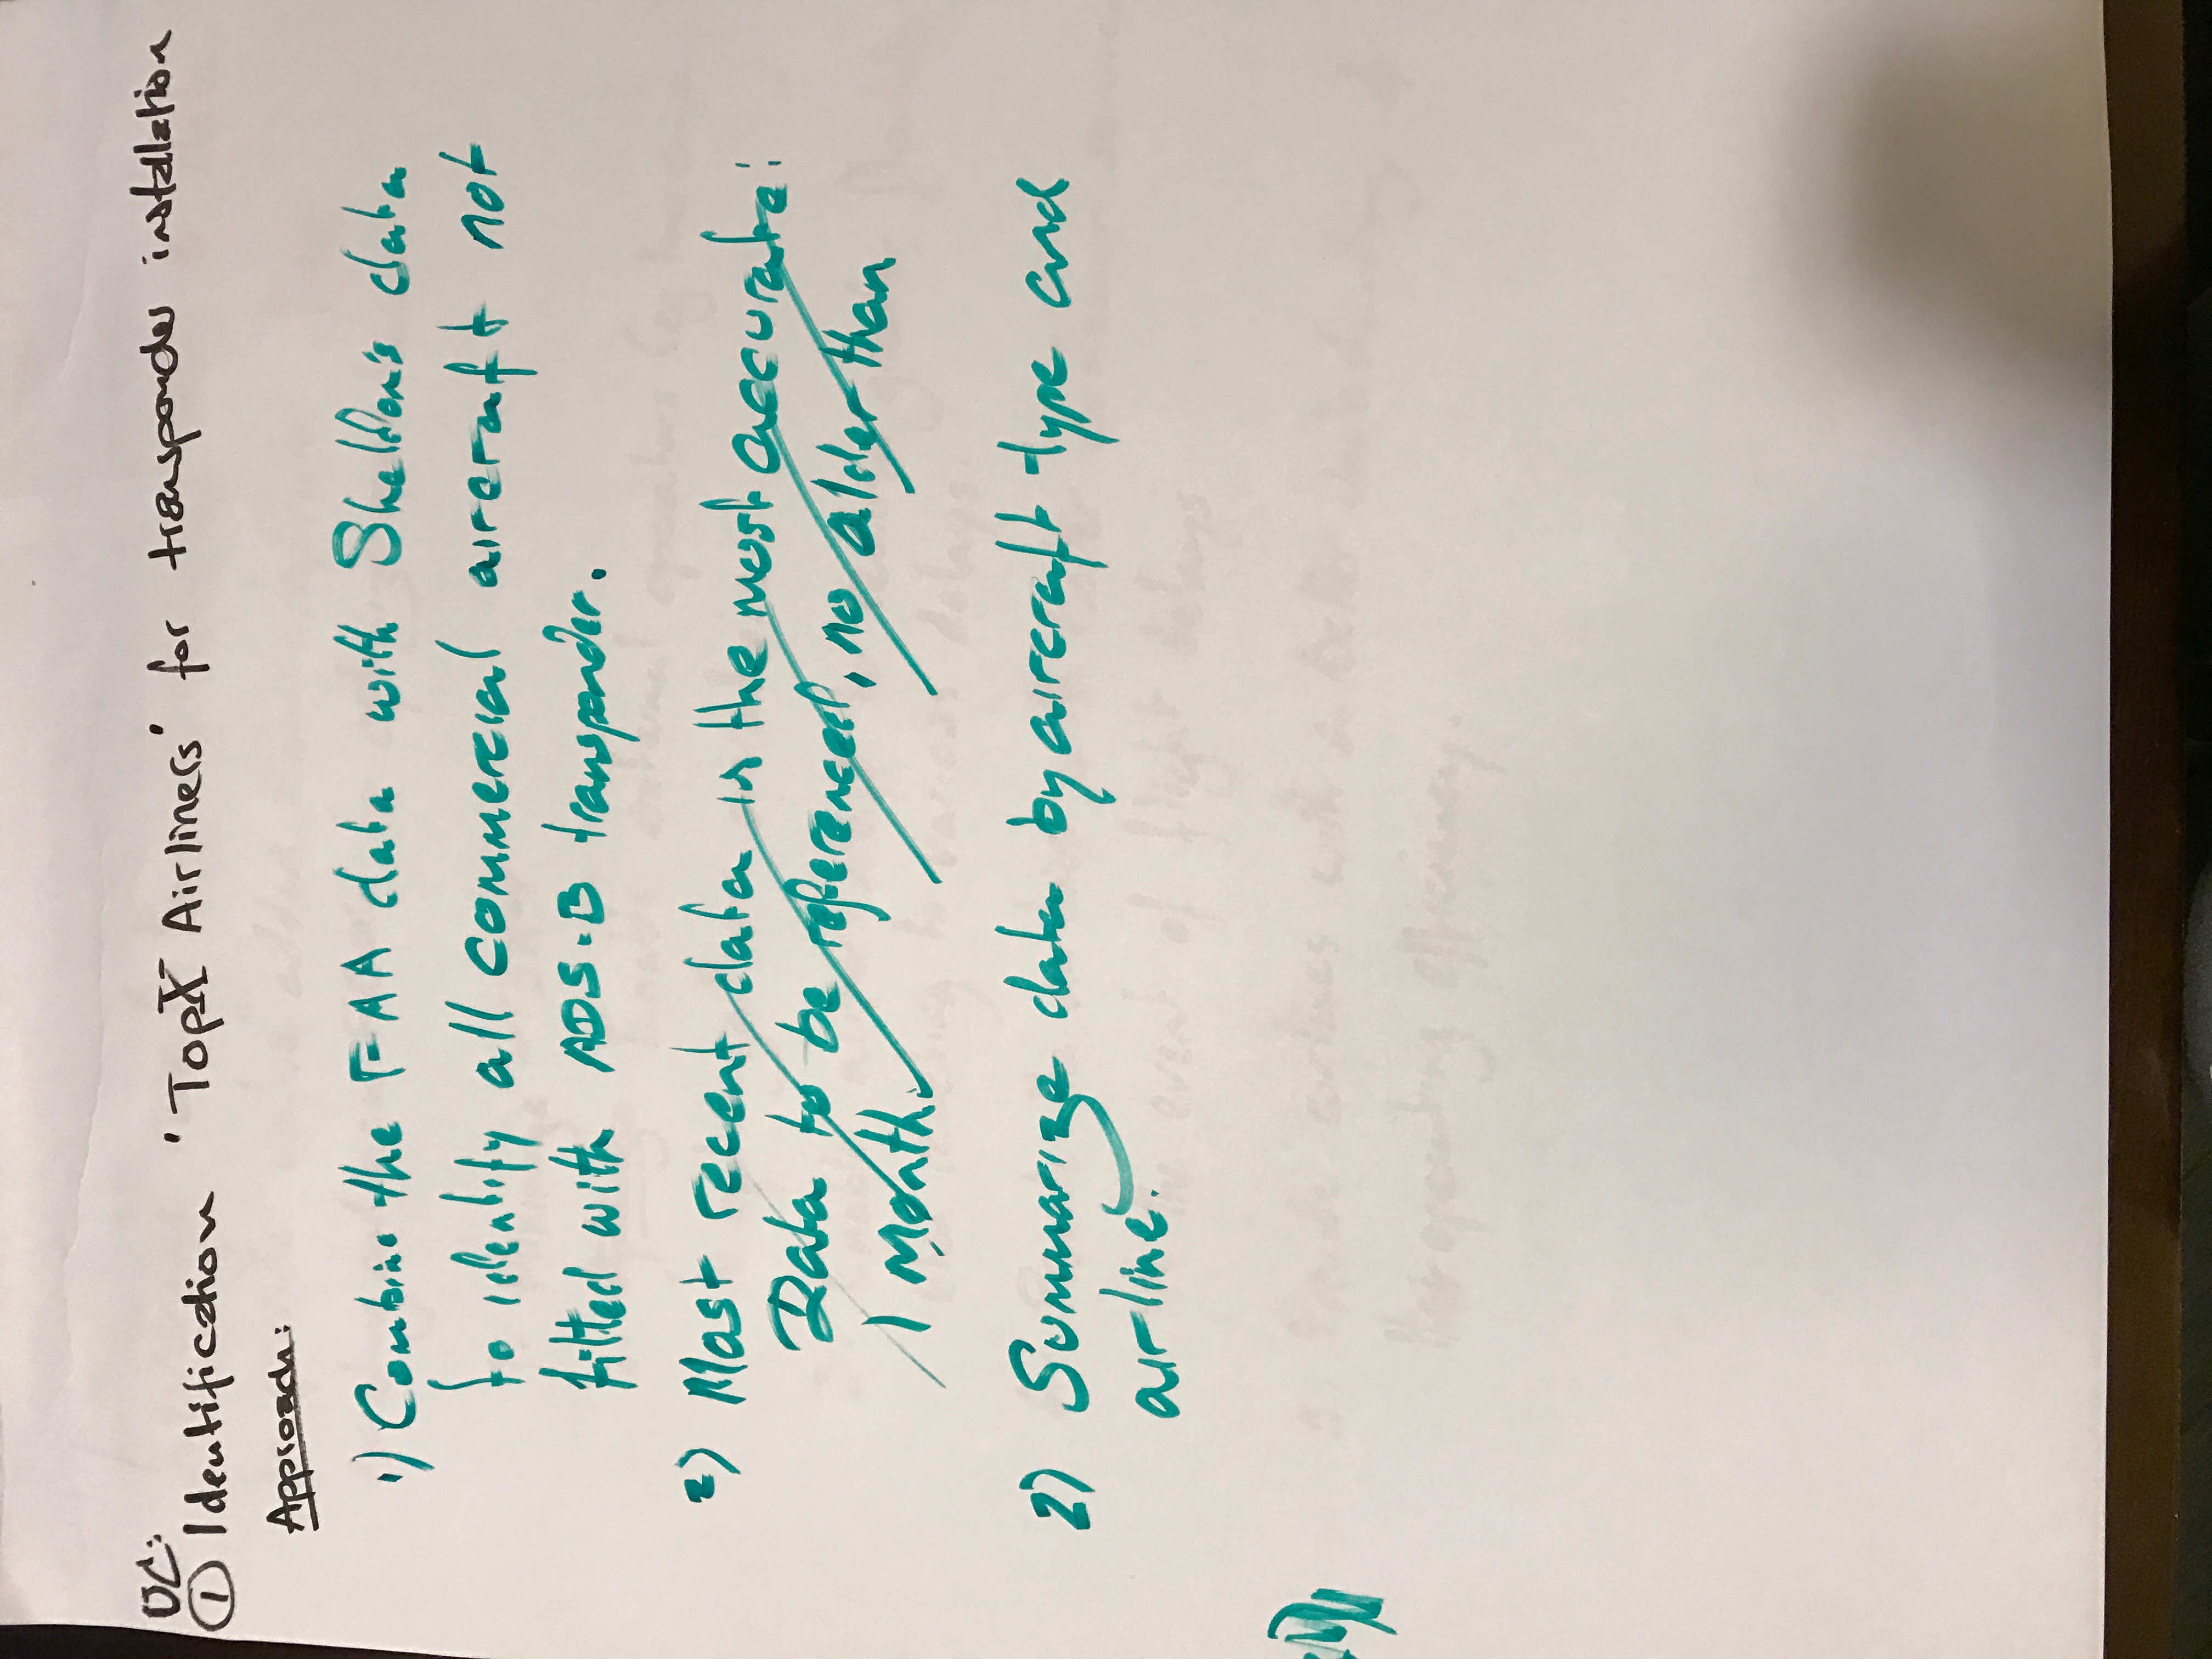 UC:
① Identification 'TopX Airliners' for transponder installation
Approach:
1) Combine the FAA data with Sheldon's data
to identify all commercial aircraft not
fitted with ADS-B transponder.
2) Most recent data is the most accurate:
Data to be referenced, no older than
1 Month.
2) Summarize data by aircraft type and
airline.
event of flight delays
airlines with a better
operating efficiency.